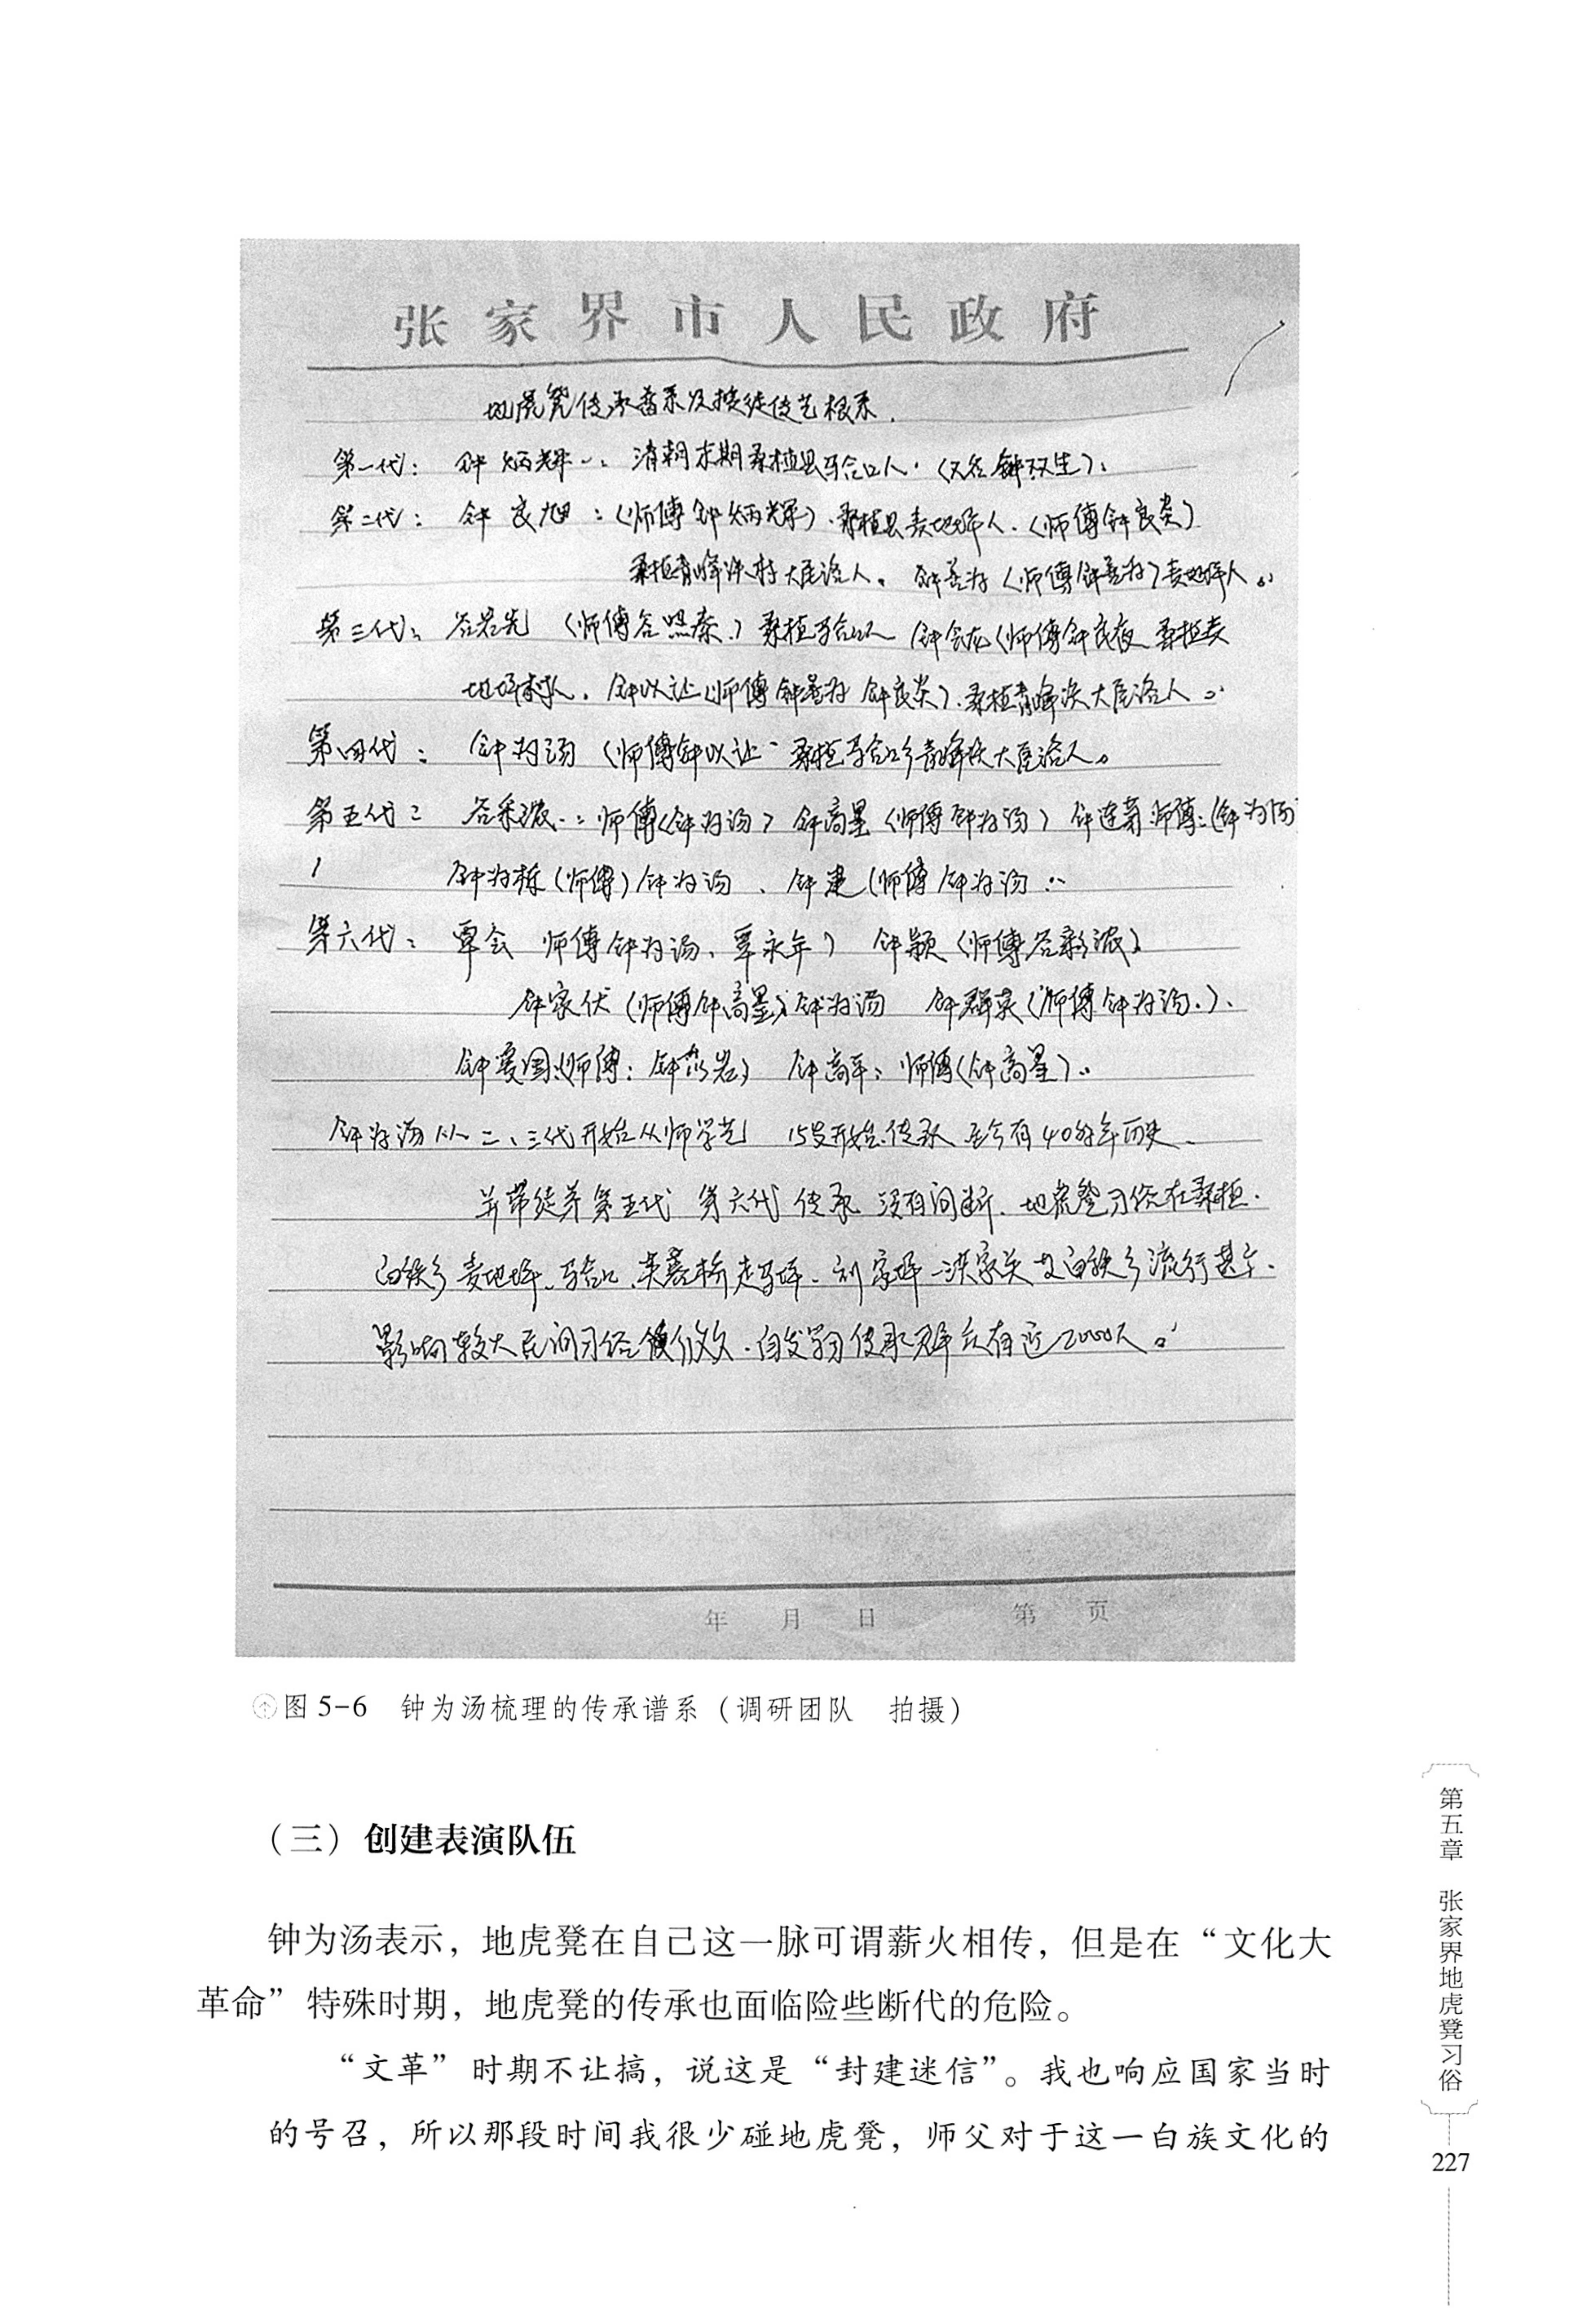 张家界市人民政府
地虎凳传承谱系及接徒传艺根系.
第一代: 钟炳辉 清朝末期桑植县马合口人.(又名钟双生).
第二代: 钟良旭:(师傅钟炳辉).桑植县麦地坪人.(师傅钟良类)
桑植青峰溪村大屋洛人。钟善为(师傅钟善为)麦地坪人。
第三代: 谷岩先(师傅谷照泰.)桑植马合口人 钟会龙(师傅钟良夜 桑植麦
地坪村人.钟以让(师傅钟善为 钟良类).桑植青峰溪大屋洛人。
第四代: 钟为汤(师傅钟以让 桑植马合口乡青峰溪大屋洛人。
第五代: 谷采浓: 师傅(钟为汤) 钟高星(师傅钟为汤) 钟连菊 师傅:(钟为汤
钟为栋(师傅)钟为汤、钟建(师傅钟为汤
第六代: 覃会 师傅钟为汤、覃永年) 钟颖(师傅谷彩浓)
钟家伏(师傅钟高星)钟为汤 钟群英(师傅钟为汤.).
钟爱国(师傅: 钟 岩) 钟高平: 师傅(钟高星)。
钟为汤从二、三代开始从师学艺 15岁开始传承 至今有40多年历史.
并带徒弟第五代 第六代 传承 没有间断.地虎凳习俗在桑植.
白族乡麦地坪、马合口、芙蓉桥走马坪、刘家坪 洪家关 白族乡流行甚广.
影响较大民间习俗 仿效.自发学习传承群众有近2000人。
年 月 日 第 页
图 5-6 钟为汤梳理的传承谱系(调研团队 拍摄)
(三)创建表演队伍
钟为汤表示，地虎凳在自己这一脉可谓薪火相传，但是在“文化大
革命”特殊时期，地虎凳的传承也面临险些断代的危险。
“文革”时期不让搞，说这是“封建迷信”。我也响应国家当时
的号召，所以那段时间我很少碰地虎凳，师父对于这一白族文化的
第五章 张家界地虎凳习俗
227